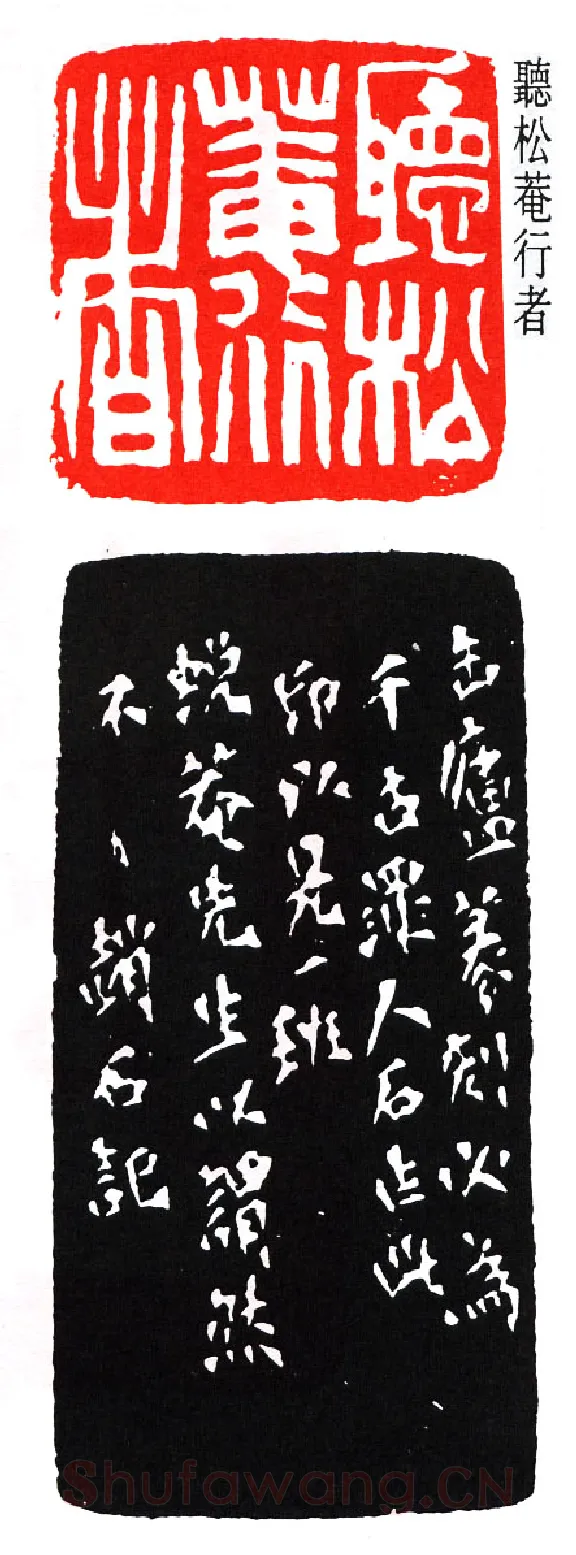 聽松菴行者
聽松
菴行
者
缶廬摹刻以為
千古罪人石作此
印以見一班
蛻菴先生以謂然
不、趙石記
Shufawang.CN